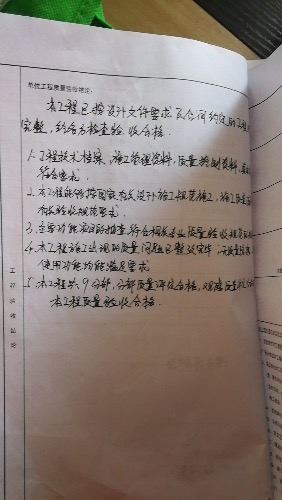 单位工程质量验收结论：
本工程已按设计文件要求及合同约定的工程
完整，经各方检查验收合格。
1. 工程技术档案、施工管理资料，质量控制资料，
符合要求。
2. 本工程能够按国家有关设计施工规范施工，施工质量
有关验收规范要求。
3. 主要功能项目的抽查符合相关专业质量验收规范
4. 本工程施工出现的质量问题已整改完毕，
使用功能均能满足要求
5. 本工程共9分部，分部质量评定合格，观感质量
本工程质量验收合格。
工程验收结论